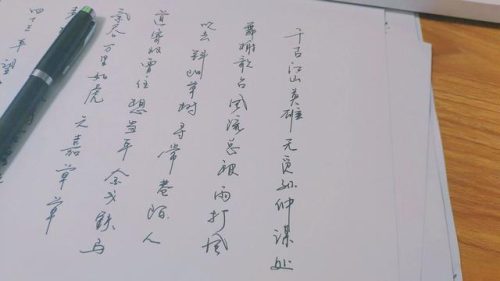 千古江山英雄无觅孙仲谋处
舞榭歌台风流总被雨打风
吹去斜阳草树寻常巷陌人
道寄奴曾住想当年金戈铁马
气吞万里如虎元嘉草草
四十三年望